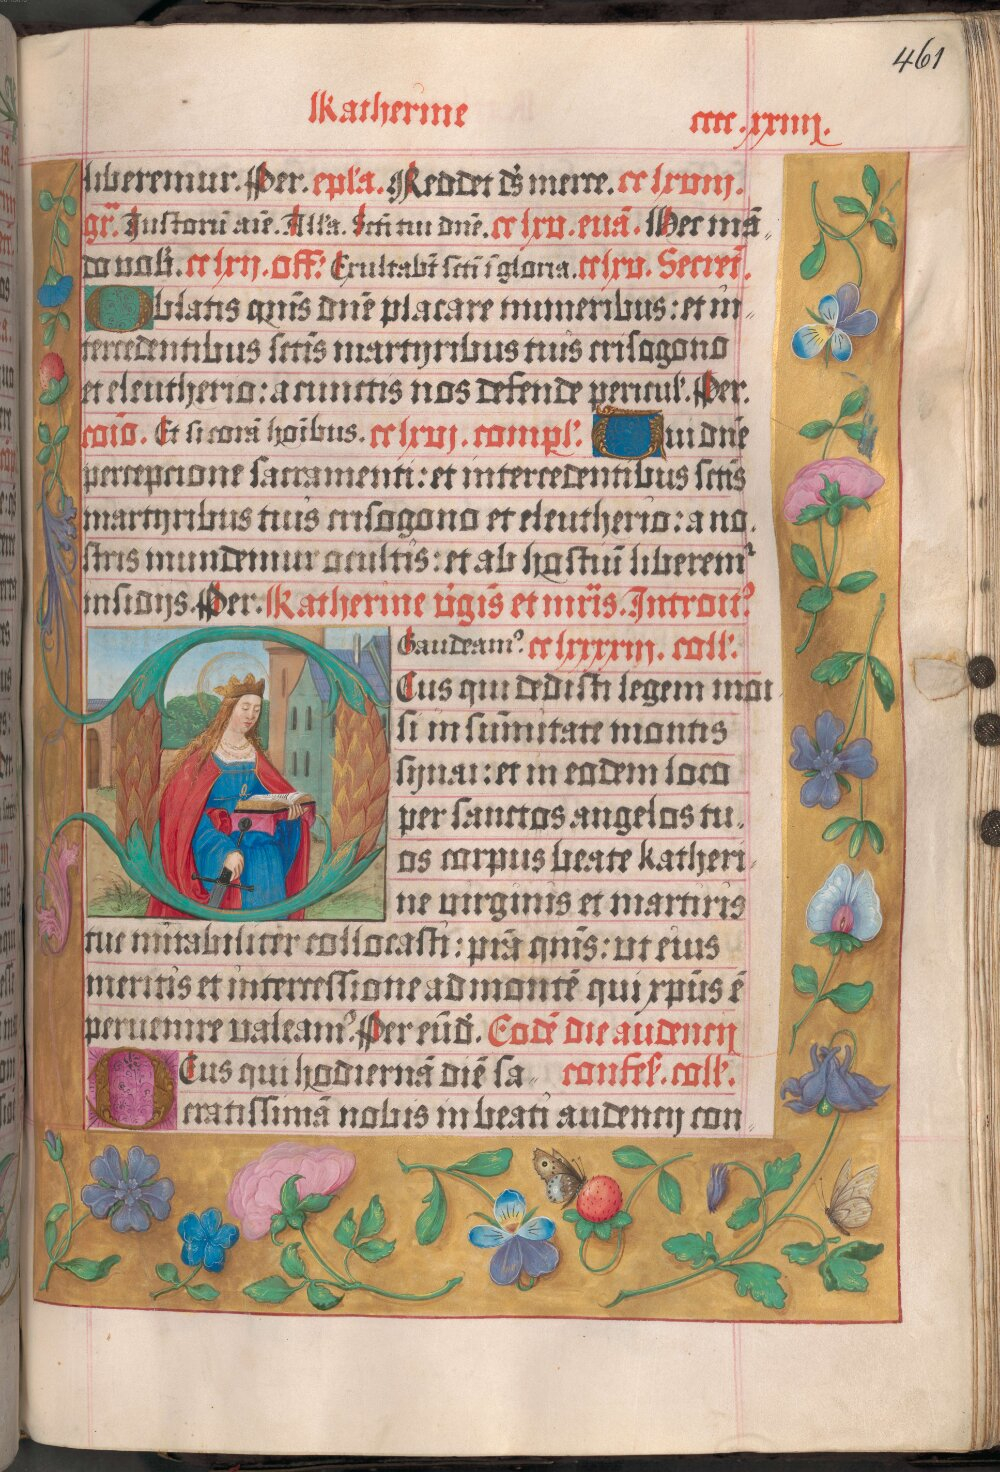 461
Katherine
cccc.xxiiij.
liberemur. Per. epl'a. Reddet ds̄ merce. cc lxviij.
gr̄. Iustorū aīe. All'a. Scti tui dnē. cc lxv. euā. Hec mā-
do vob̄. cc lxij. off. Exultabt̄ scti ī gloria. cc lxv. Secret̄.
Oblatis qms̄ dnē placare muneribus: et in-
tercedentibus sctis̄ martyribus tuis crisogono
et eleutherio: a cunctis nos defende pericul'. Per.
coīo. Et si corā hoībus. cc lxvj. compl'. Qui dnē
percepcione sacramenti: et intercedentibus sctis̄
martyribus tuis crisogono et eleutherio: a no-
stris mundemur ocultis: et ab hostiū liberemr
insidijs. Per. Katherine v̄gis̄ et mr̄is. Introitꝰ
Gaudeamꝰ. cc lxxxxiij. coll'.
Deus qui dedisti legem moi
si in sūmitate montis
synai: et in eodem loco
per sanctos angelos tu-
os corpus beate katheri-
ne virginis et martiris
tue mirabiliter collocasti: prā qms̄: ut eius
meritis et intercessione ad montē qui xpūs ē
peruenire valeamꝰ. Per eūd̄. Eodē die audencij
Deus qui hodiernā diē sa- confes. coll'.
cratissimā nobis in beati audencij con-